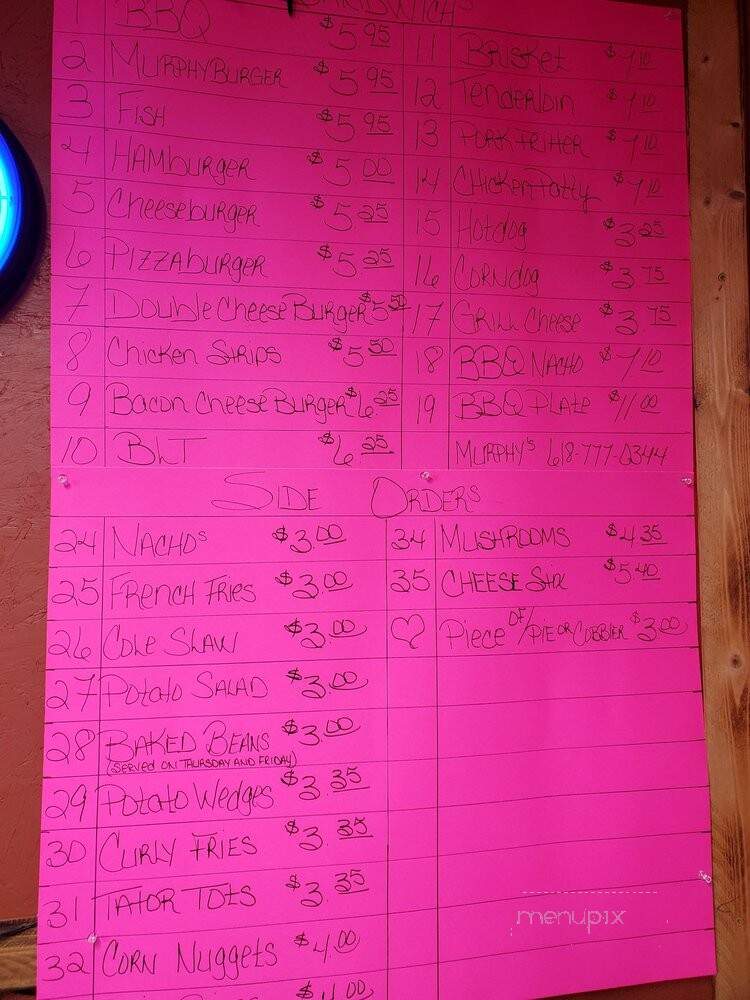 SANDWICHS
1 BBQ $5.95
2 MURPHYBURGER $5.95
3 FISH $5.95
4 HAMburger $5.00
5 Cheeseburger $5.25
6 PIZZAburger $5.25
7 Double Cheese Burger $5.50
8 Chicken Strips $5.50
9 Bacon Cheese Burger $6.25
10 BLT $6.25
11 BRISKET $7.10
12 Tenderloin $7.10
13 PORK Fritter $7.10
14 Chicken Patty $7.10
15 Hotdog $3.25
16 CORNdog $3.75
17 GRILL Cheese $3.75
18 BBQ NACHO $7.10
19 BBQ PLATE $11.00
MURPHY'S 618-777-0344
SIDE ORDERS
24 NACHOS $3.00
25 FRENCH FRIES $3.00
26 COLE SLAW $3.00
27 Potato SALAD $3.00
28 BAKED BEANS $3.00
(SERVED ON THURSDAY AND FRIDAY)
29 Potato Wedges $3.35
30 CURLY FRIES $3.35
31 TATOR TOTS $3.35
32 CORN Nuggets $4.00
$4.00
34 MUSHROOMS $4.35
35 CHEESE Stix $5.40
♡ Piece OF/PIE OR COBBIER $3.00
menupix